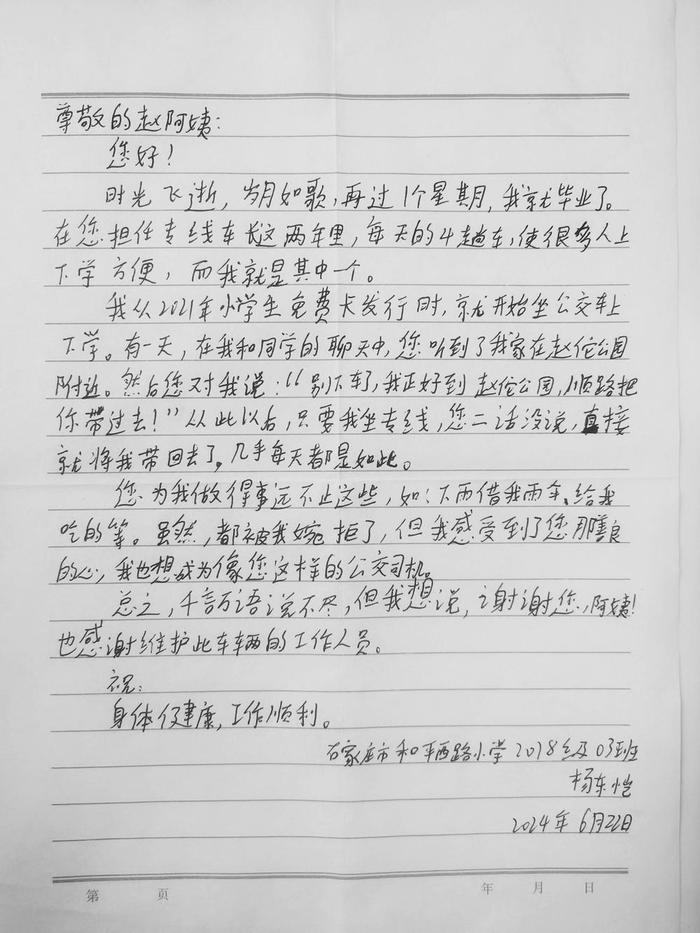 尊敬的赵阿姨:
您好!
时光飞逝,岁月如歌,再过1个星期,我就毕业了。
在您担任专线车长这两年里,每天的4趟车,使很多人上
下学方便,而我就是其中一个。
我从2021年小学生免费卡发行时,就开始坐公交车上
下学。有一天,在我和同学的聊天中,您听到了我家在赵佗公园
附近。然后您对我说:“别下车了,我正好到赵佗公园,顺路把
你带过去!”从此以后,只要我坐专线,您二话没说,直接
就将我带回去了,几乎每天都是如此。
您为我做得事远不止这些,如:下雨借我雨伞、给我
吃的等。虽然,都被我婉拒了,但我感受到了您那善良
的心,我也想成为像您这样的公交司机。
总之,千言万语说不尽,但我想说,谢谢您,阿姨!
也感谢维护此车辆的工作人员。
祝:
身体健康,工作顺利。
石家庄市和平西路小学2018级03班
杨东恺
2024年6月22日
第 页 年 月 日